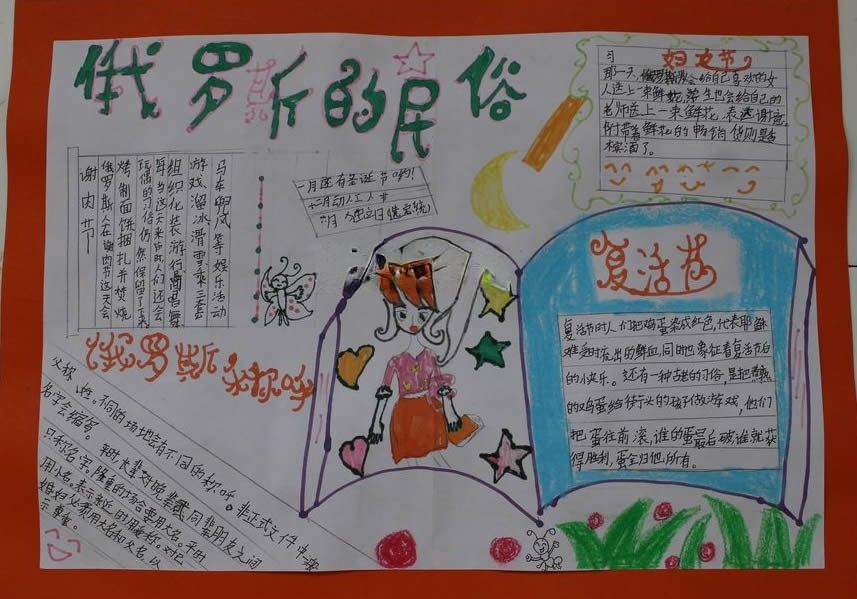 俄罗斯的民俗
妇女节
那一天,俄罗斯会给自己喜欢的女
人送上一束鲜花,学生也会给自己的
老师送上一束鲜花,表达谢意。
附带着鲜花的畅销货则是香
槟酒了。
谢肉节
俄罗斯人在谢肉节这天会
烤制面饼捆扎并焚烧
玩偶的习俗仍然保留了下来
每当这天来临时人们还会
组织化装游行,高唱舞
游戏溜冰滑雪乘三套
马车兜风等娱乐活动
一月还有圣诞节哟!
俄罗斯
复活节
复活节时人们把鸡蛋染成红色,代表耶稣
难时流出的鲜血,同时也象征着复活节后
的快乐。还有一种古老的习俗,是把煮熟
的鸡蛋给街头的孩子做游戏,他们
把蛋往前滚,谁的蛋最后破,谁就获
得胜利,蛋全归他所有。
父称、姓。不同的场地会有不同的称呼。非正式文件中
名字会缩写。平时,长辈对晚辈或同辈朋友之间
只称名字。隆重的场合要用大名。平时
用小名。表示亲近的用爱称。对已
婚妇女要用大名和父名,以
示尊重。